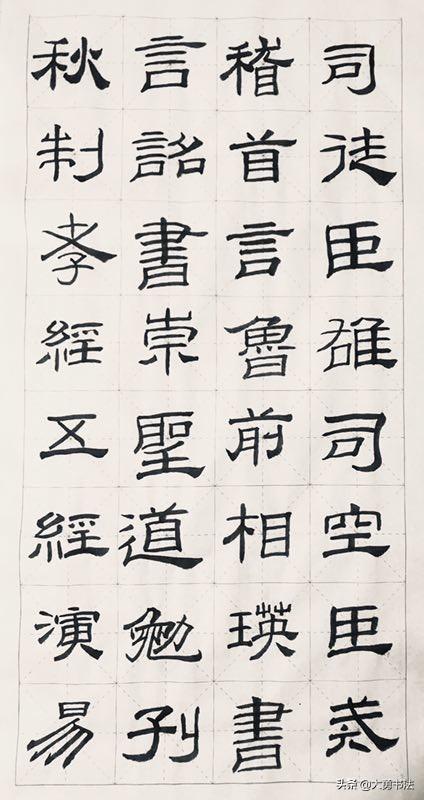 司徒臣雄司空臣戒
稽首言魯前相瑛書
言詔書崇聖道勉孔
秋制孝經五經演易
头条 @大勇书法